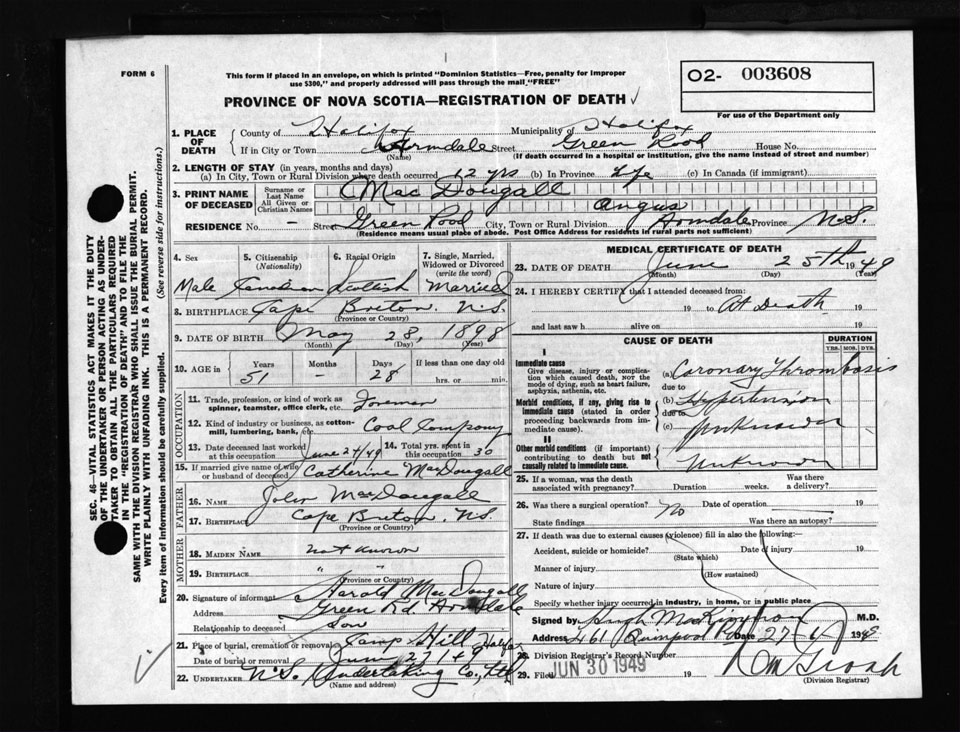 FORM 6
This form if placed in an envelope, on which is printed "Dominion Statistics—Free, penalty for improper
use $300," and properly addressed will pass through the mail "FREE"
O2- 003608
For use of the Department only
PROVINCE OF NOVA SCOTIA—REGISTRATION OF DEATH
1. PLACE OF DEATH { County of Halifax Municipality of Halifax
If in City or Town Armdale Street Green Rood House No.
(Name) (If death occurred in a hospital or institution, give the name instead of street and number)
2. LENGTH OF STAY (in years, months and days)
(a) In City, Town or Rural Division where death occurred 12 yrs (b) In Province Life (c) In Canada (if immigrant)
3. PRINT NAME OF DECEASED { Surname or Last Name Mac Dougall
All Given or Christian Names Angus
RESIDENCE No. - Street Green Rood City, Town or Rural Division Armdale Province N.S.
(Residence means usual place of abode. Post Office Address for residents in rural parts not sufficient)
4. Sex 5. Citizenship (Nationality) 6. Racial Origin 7. Single, Married, Widowed or Divorced (write the word)
Male Canadian Scottish Married
8. BIRTHPLACE Cape Breton. N.S.
(Province or Country)
9. DATE OF BIRTH May 28, 1898
(Month) (Day) (Year)
10. AGE in { Years Months Days If less than one day old
51 - 28 hrs. or min.
OCCUPATION
11. Trade, profession, or kind of work as spinner, teamster, office clerk, etc. Foreman
12. Kind of industry or business, as cotton-mill, lumbering, bank, etc. Coal Company
13. Date deceased last worked at this occupation June 24/49 14. Total yrs. spent in this occupation 30
15. If married give name of wife or husband of deceased Catherine MacDougall
FATHER
16. NAME John MacDougall
17. BIRTHPLACE Cape Breton. N.S.
(Province or Country)
MOTHER
18. MAIDEN NAME not known
19. BIRTHPLACE " "
(Province or Country)
20. Signature of informant Harold MacDougall
Address Green Rd. Armdale
Relationship to deceased Son
21. Place of burial, cremation or removal Camp Hill Halifax
Date of burial or removal June 27/49
22. UNDERTAKER N.S. Undertaking Co., Ltd
(Name and address)
MEDICAL CERTIFICATE OF DEATH
23. DATE OF DEATH June 25th 1949
(Month) (Day) (Year)
24. I HEREBY CERTIFY that I attended deceased from:
19 to At Death 19
and last saw h alive on 19
CAUSE OF DEATH DURATION
YRS. MOS. DYS.
I
Immediate cause
Give disease, injury or complication which caused death, NOT the mode of dying, such as heart failure, asphyxia, asthenia, etc.
(a) Coronary Thrombosis
due to
Morbid conditions, if any, giving rise to immediate cause (stated in order proceeding backwards from immediate cause).
(b) Hypertension
due to
(c) Unknown
II
Other morbid conditions (if important) contributing to death but not causally related to immediate cause.
Unknown
25. If a woman, was the death associated with pregnancy? Duration weeks. Was there a delivery?
26. Was there a surgical operation? No Date of operation 19
State findings Was there an autopsy?
27. If death was due to external causes (violence) fill in also the following:—
Accident, suicide or homicide? Date of injury 19
(State which)
Manner of injury
(How sustained)
Nature of injury
Specify whether injury occurred in industry, in home, or in public place
Signed by Hugh MacKinnon M.D.
Address 461 Quinpool Rd Date 1949
28. Division Registrar's Record Number
29. Filed JUN 30 1949 19
(Division Registrar)
SEC. 46—VITAL STATISTICS ACT MAKES IT THE DUTY
OF THE UNDERTAKER OR PERSON ACTING AS UNDER-
TAKER TO OBTAIN ALL THE PARTICULARS REQUIRED
IN THE "REGISTRATION OF DEATH" AND TO FILE THE
SAME WITH THE DIVISION REGISTRAR WHO SHALL ISSUE THE BURIAL PERMIT.
WRITE PLAINLY WITH UNFADING INK. THIS IS A PERMANENT RECORD.
Every item of information should be carefully supplied. (See reverse side for instructions.)